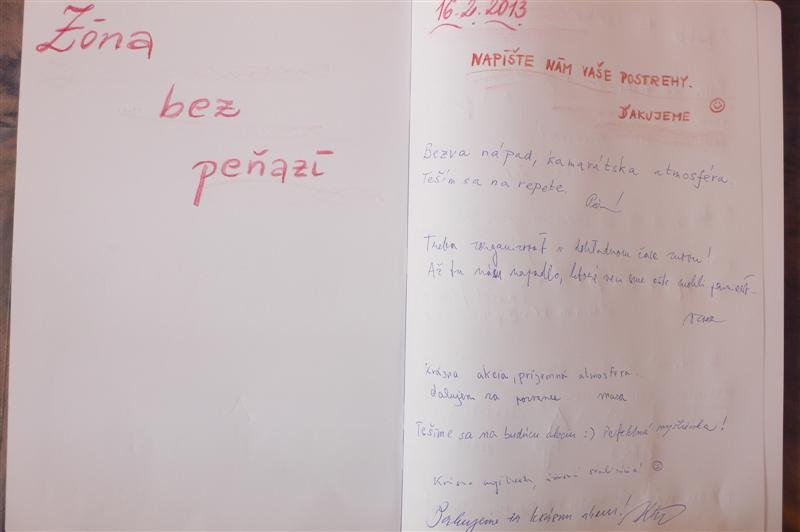 Zóna
bez
peňazí
16.2.2013
NAPÍŠTE NÁM VAŠE POSTREHY.
ĎAKUJEME ☺
Bezva nápad, kamarátska atmosféra.
Teším sa na repete.
Treba zorganizovať v dohľadnom čase znovu!
Až tu nás napadlo, sme ešte mohli
Krásna akcia, príjemná atmosféra.
Ďakujem za pozvanie
Tešíme sa na budúcu akciu :) Perfektná myšlienka!
Krásna myšlienka,
Ďakujeme za krásnu akciu!